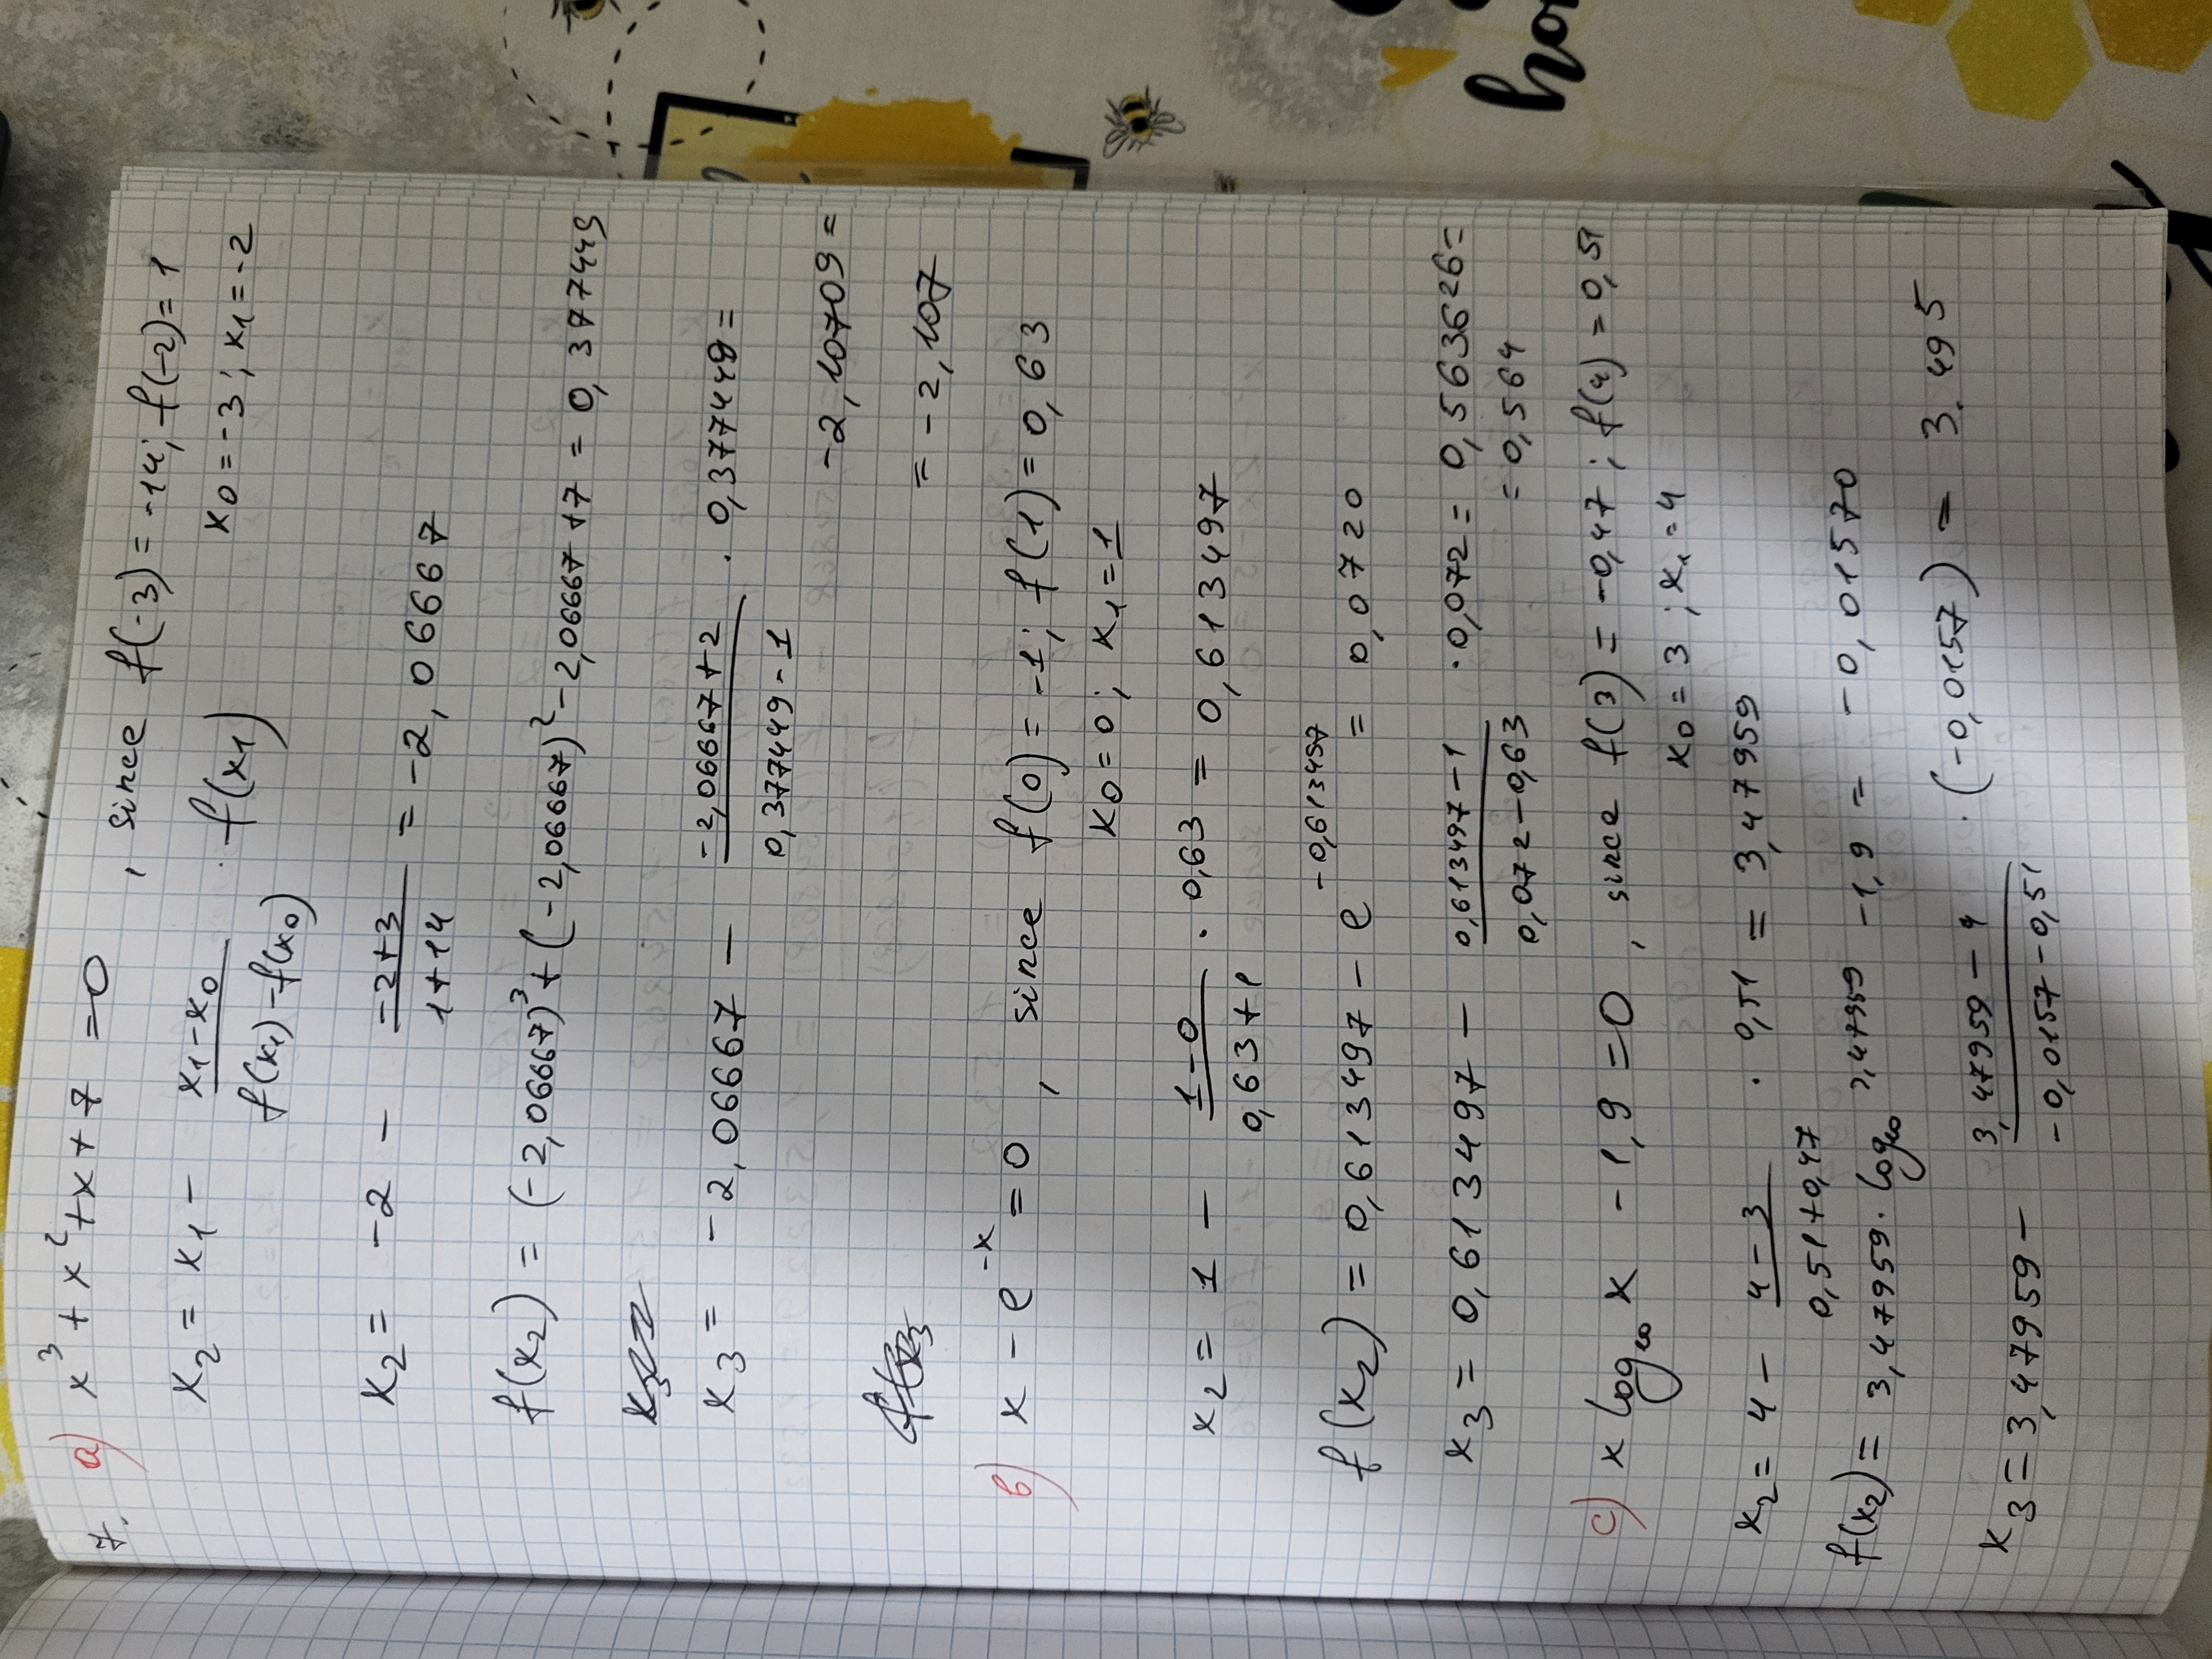 7. a) x³ + x² + x + 7 = 0
, since f(-3) = -14; f(-2) = 1
x₂ = x₁ - (x₁ - x₀)/(f(x₁) - f(x₀)) · f(x₁)
x₀ = -3; x₁ = -2
x₂ = -2 - (-2+3)/(1+14) = -2,06667
f(x₂) = (-2,06667)³ + (-2,06667)² - 2,06667 + 7 = 0,377449
x₃ = -2,06667 - (-2,06667+2)/(0,377449-1) · 0,377449 =
-2,10709 =
= -2,107
b) x - e^(-x) = 0 , since f(0) = -1; f(1) = 0,63
x₀ = 0; x₁ = 1
x₂ = 1 - (1-0)/(0,63+1) · 0,63 = 0,613497
f(x₂) = 0,613497 - e^(-0,613497) = 0,0720
x₃ = 0,613497 - (0,613497-1)/(0,072-0,63) · 0,072 = 0,563626 =
= 0,564
c) x log₁₀ x - 1,9 = 0 , since f(3) = -0,47; f(4) = 0,51
x₀ = 3; x₁ = 4
x₂ = 4 - (4-3)/(0,51+0,47) · 0,51 = 3,47959
f(x₂) = 3,47959 · log₁₀ 3,47959 - 1,9 = -0,01570
x₃ = 3,47959 - (3,47959-4)/(-0,0157-0,51) · (-0,0157) = 3.495
ho